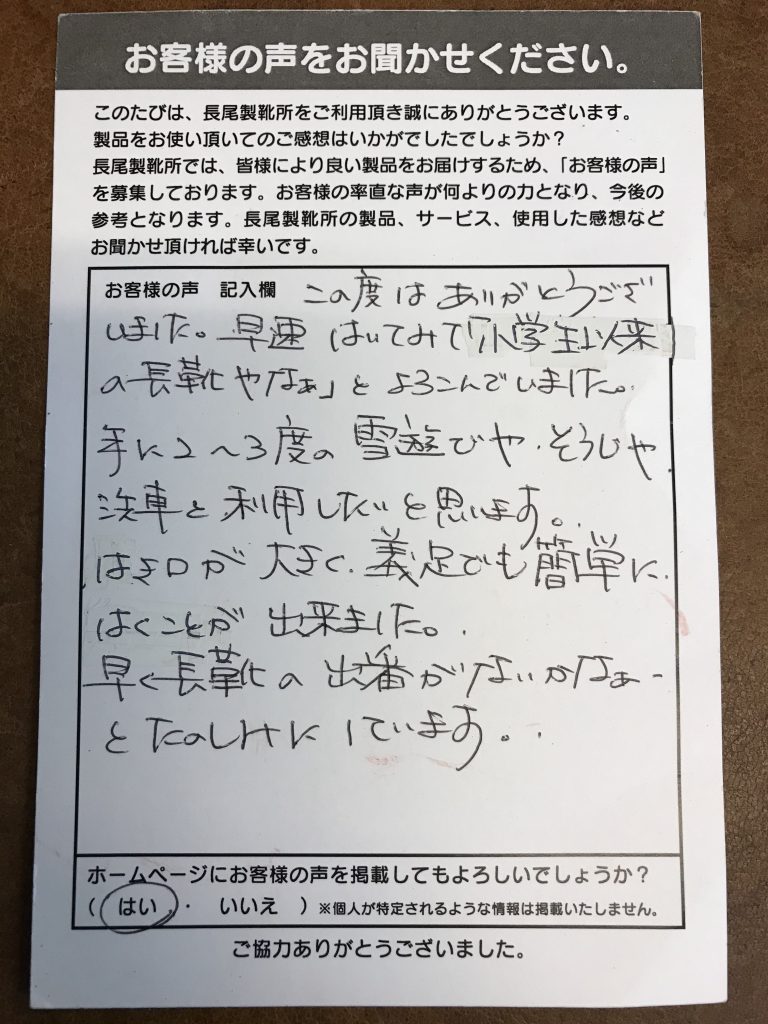 お客様の声をお聞かせください。
このたびは、長尾製靴所をご利用頂き誠にありがとうございます。
製品をお使い頂いてのご感想はいかがでしたでしょうか？
長尾製靴所では、皆様により良い製品をお届けするため、「お客様の声」
を募集しております。お客様の率直な声が何よりの力となり、今後の
参考となります。長尾製靴所の製品、サービス、使用した感想など
お聞かせ頂ければ幸いです。
お客様の声　記入欄　この度は ありがとうござ
いました。早速 はいてみて「小学生以来
の長靴やなぁ」と よろこんでいました。
年に2～3度の 雪遊びや、そうじや
洗車と利用したいと思います。
はき口が 大きく、義足でも簡単に
はくことが 出来ました。
早く長靴の 出番がないかなぁー
と たのしみに しています。
ホームページにお客様の声を掲載してもよろしいでしょうか？
（　はい　・　いいえ　）※個人が特定されるような情報は掲載いたしません。
ご協力ありがとうございました。